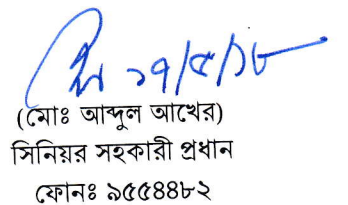 ১৭/৫/১৮
(মোঃ আব্দুল আখের)
সিনিয়র সহকারী প্রধান
ফোনঃ ৯৫৫৪৪৮২